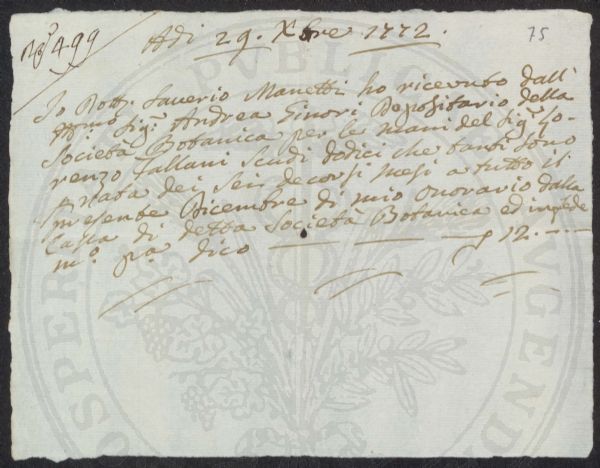 N.º 499
Adi 29. Xbre 1772.
75
Io Dott. Saverio Manetti ho ricevuto dall'
Sig.r Andrea Ginori Depositario della
Società Botanica per le mani del Sig.r Lo-
renzo Fallani Scudi dodici che tanti sono
rata dei sei decorsi mesi a tutto il
presente Dicembre di mio onorario dalla
Cassa di detta Società Botanica ed in fede
m.o pa dico 12.
PVBLIC
OSPER
VGENDA